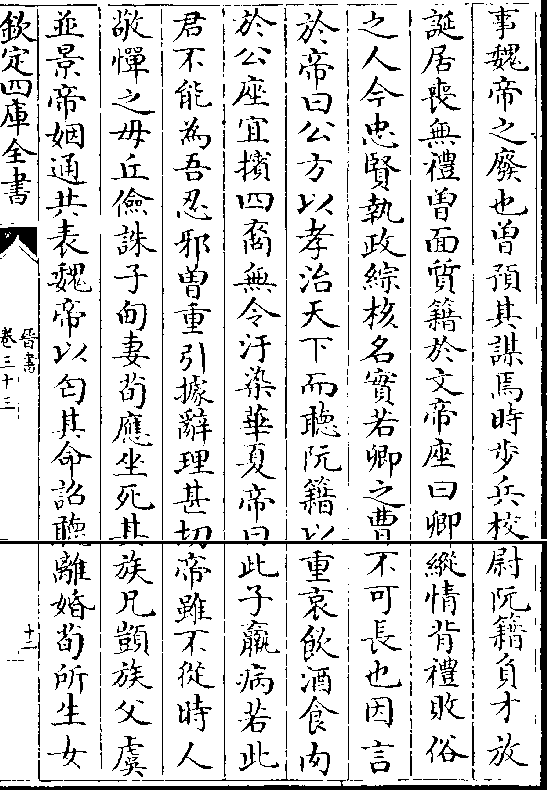 事魏帝之廢也曾預其謀焉時步兵校尉阮籍負才放
誕居喪無禮曾面質籍於文帝座曰卿縱情背禮敗俗
之人今忠賢執政綜核名實若卿之曹不可長也因言
於帝曰公方以孝治天下而聽阮籍以重哀飲酒食肉
於公座宜擯四裔無令汙染華夏帝曰此子羸病若此
君不能為吾忍邪曾重引據辭理甚切帝雖不從時人
敬憚之毋丘儉誅子甸妻荀應坐死其族兄顗族父虞
並景帝姻通共表魏帝以匄其命詔聽離婚荀所生女
欽定四庫全書
晉書
卷三十三
十二